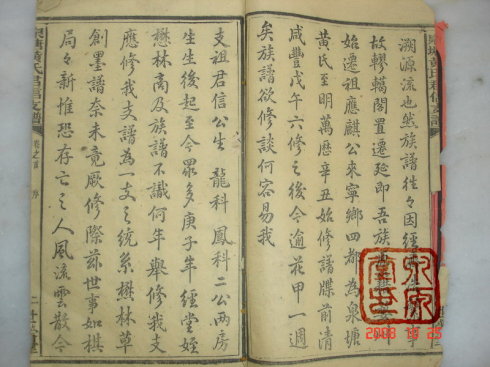 溯源流也然族譜往々因經
故轇轕閣置遷延即吾族
始遷祖應麒公來寧鄉四都為泉塘
黃氏至明萬曆辛丑始修譜牒前清
咸豐戊午六修之後今逾花甲一週
矣族譜欲修談何容易哉
支祖君信公生 龍科 鳳科二公兩房
生生後起至今眾多庚子年經堂姪
懋林商及族譜不識何年舉修我支
應修我支譜為一支之統系懋林草
創墨譜奈未竟厥修際茲世事如棋
局々新惟恐存亡之人風流雲散今
泉塘黃氏君信支譜 卷之首 序